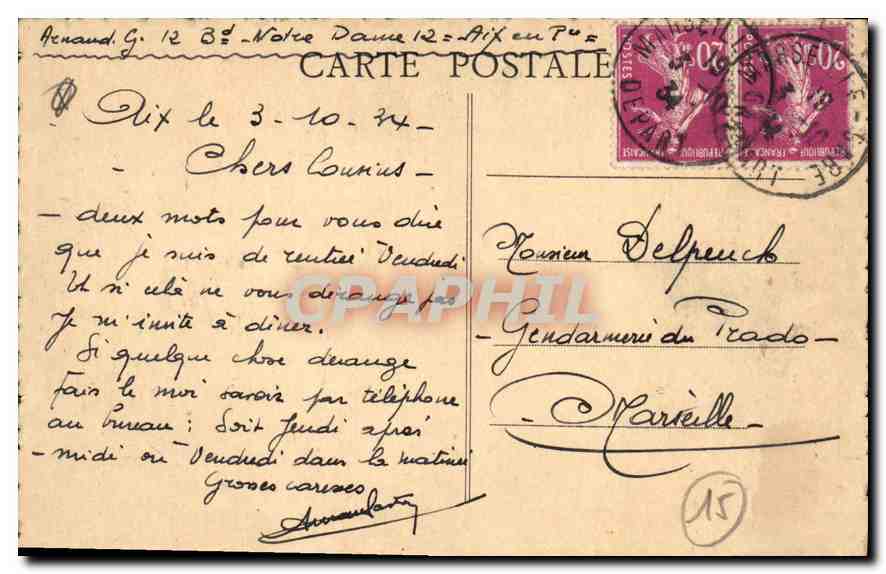 Arnaud. G. 12 Bd - Notre Dame 12 = Aix en Pce =
CARTE POSTALE
Aix le 3-10-34 -
- Chers Cousins -
- deux mots pour vous dire
que je suis de rentrée Vendredi
Et si celà ne vous dérange pas
Je m'invite à dîner.
Si quelque chose dérange
fais le moi savoir par téléphone
au bureau : Soit Jeudi après
- midi ou Vendredi dans la matinée
Grosses caresses
Monsieur Delpeuch
- Gendarmerie du Prado -
- Marseille -
15
20c
POSTES
REPUBLIQUE FRANÇAISE
20c
REPUBLIQUE FRANÇAISE
MARSEILLE-GARE
DEPART
CPAPHIL